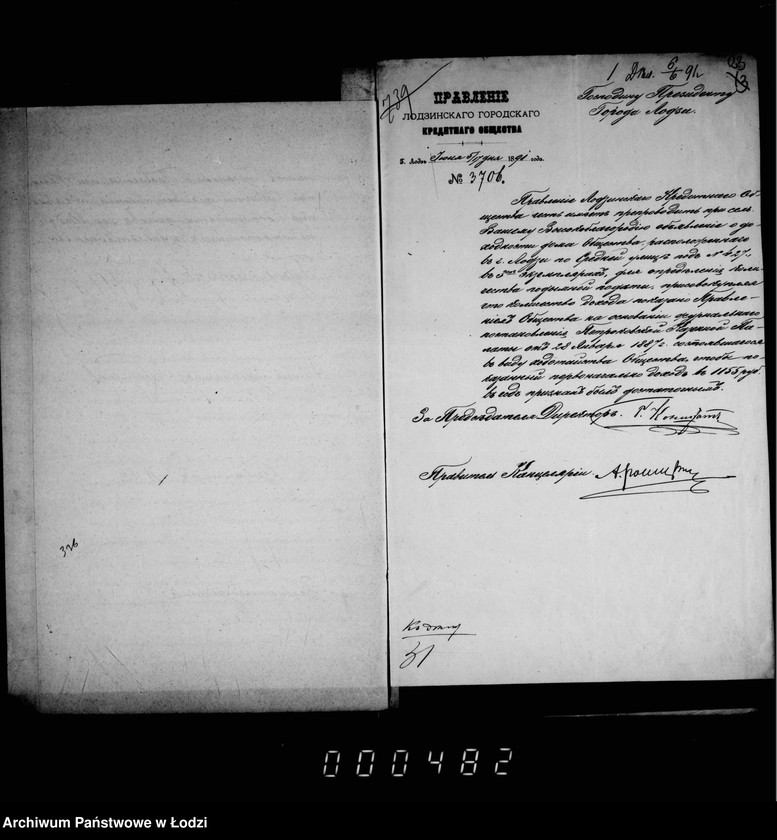 1 Дкл. 6/6 91
739
ПРАВЛЕНІЕ
ЛОДЗИНСКАГО ГОРОДСКАГО
КРЕДИТНАГО ОБЩЕСТВА
Г. Лодзь Іюня 5/ дня 1891 года.
№ 3706.
Господину Президенту
Города Лодзи.
Правленіе Лодзинскаго Кредитнаго Об-
щества честь имѣетъ препроводить при семъ
Вашему Высокоблагородію объявленія о до-
ходности дома Общества, расположеннаго
въ г. Лодзи по Средней улицѣ подъ № 427,
въ 5 экземплярахъ, для опредѣленія коли-
чества подымной подати, присовокупляя
что количество дохода показано Правле-
ніемъ Общества на основаніи журнальнаго
постановленія Петроковской Казенной Па-
латы отъ 28 Января 1887 г. состоявшагося
въ виду ходатайства Общества, чтобы по-
казанный первоначально доходъ въ 1155 руб.
въ годъ признанъ былъ достаточнымъ.
За Предсѣдателя Директоръ
Правитель Канцеляріи
326
Къ дѣлу
51
000482
Archiwum Państwowe w Łodzi